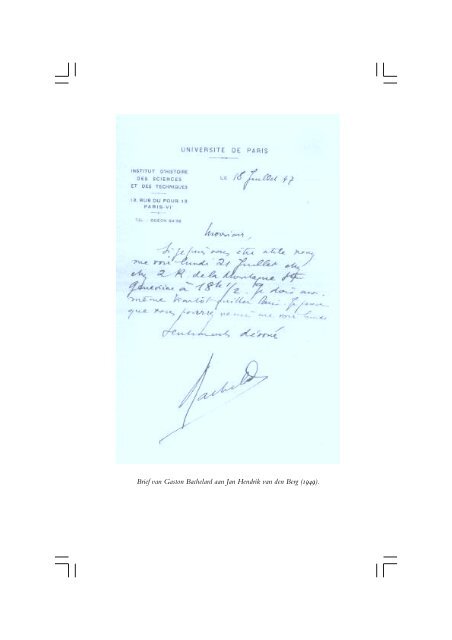 UNIVERSITÉ DE PARIS
INSTITUT D'HISTOIRE
DES SCIENCES
ET DES TECHNIQUES
LE 18 Juillet 47
13, RUE DU FOUR 13
PARIS-VI
TÉL.
Monsieur,
Si je puis vous être utile
me voir lundi 21 Juillet chez
2 R. de la Montagne Ste
Geneviève à 18h 1/2. Je dois moi
même bientôt Je pense
que vous pourrez venir me voir lundi
dévoué
Bachelard
Brief van Gaston Bachelard aan Jan Hendrik van den Berg (1949).